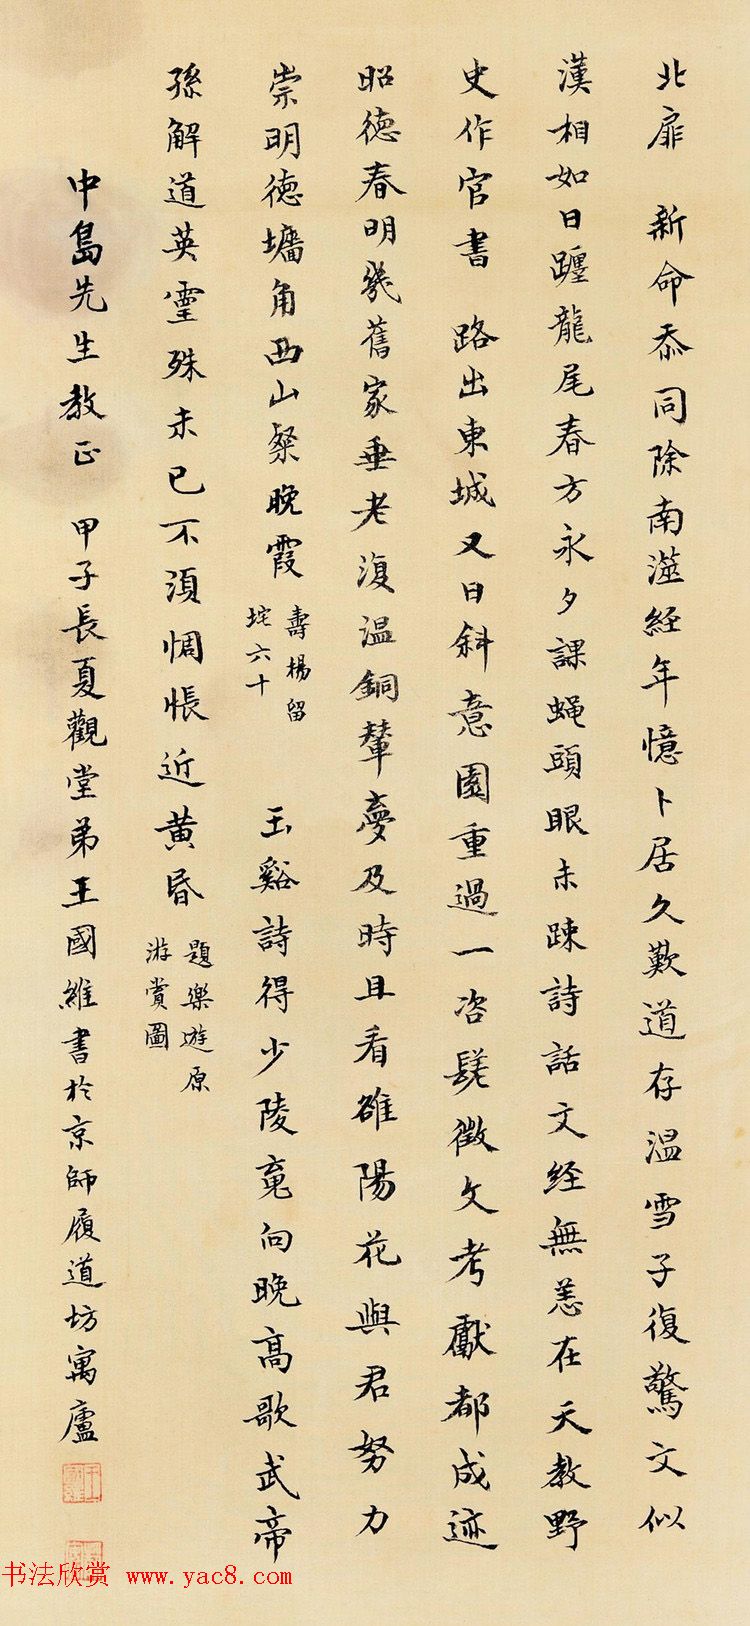 北扉 新命忝同除南澨經年憶卜居久歎道存溫雪子復驚文似
漢相如日躔龍尾春方永夕課蠅頭眼未疎詩話文經無恙在天教野
史作官書 路出東城又日斜意園重過一咨嗟徵文考獻都成迹
昭德春明幾舊家垂老復溫銅輦夢及時且看雒陽花與君努力
崇明德墻角西山粲晚霞 壽楊留
垞六十
玉谿詩得少陵魂向晚高歌武帝
孫解道英靈殊未已不須惆悵近黃昏 題樂遊原
游賞圖
中島先生教正 甲子長夏觀堂弟王國維書於京師履道坊寓廬
书法欣赏 www.yac8.com